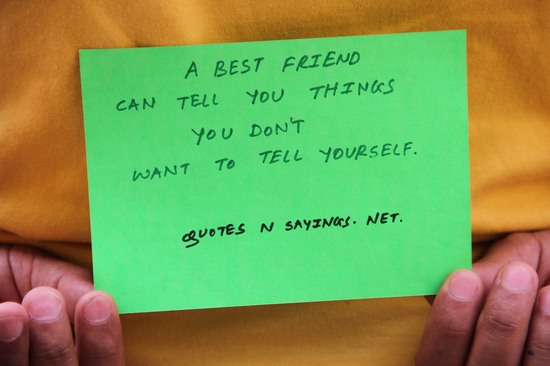 A BEST FRIEND
CAN TELL YOU THINGS
YOU DON'T
WANT TO TELL YOURSELF.
QUOTES N SAYINGS. NET.